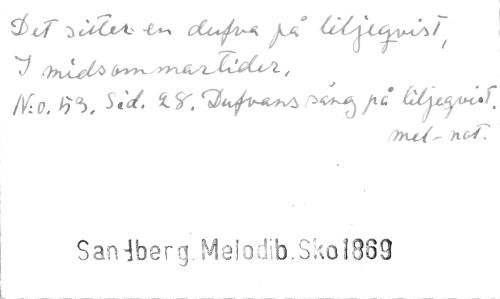 Det sitter en dufva på liljeqvist,
I midsommartider.
N:o. 53. Sid. 28. Dufvans sång på liljeqvist.
mel-not.
Sandberg. Melodib. Sko 1869